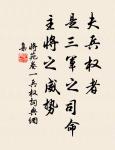 夫兵权者
是三军之司命
主将之威势
将苑卷一兵权词典网
集